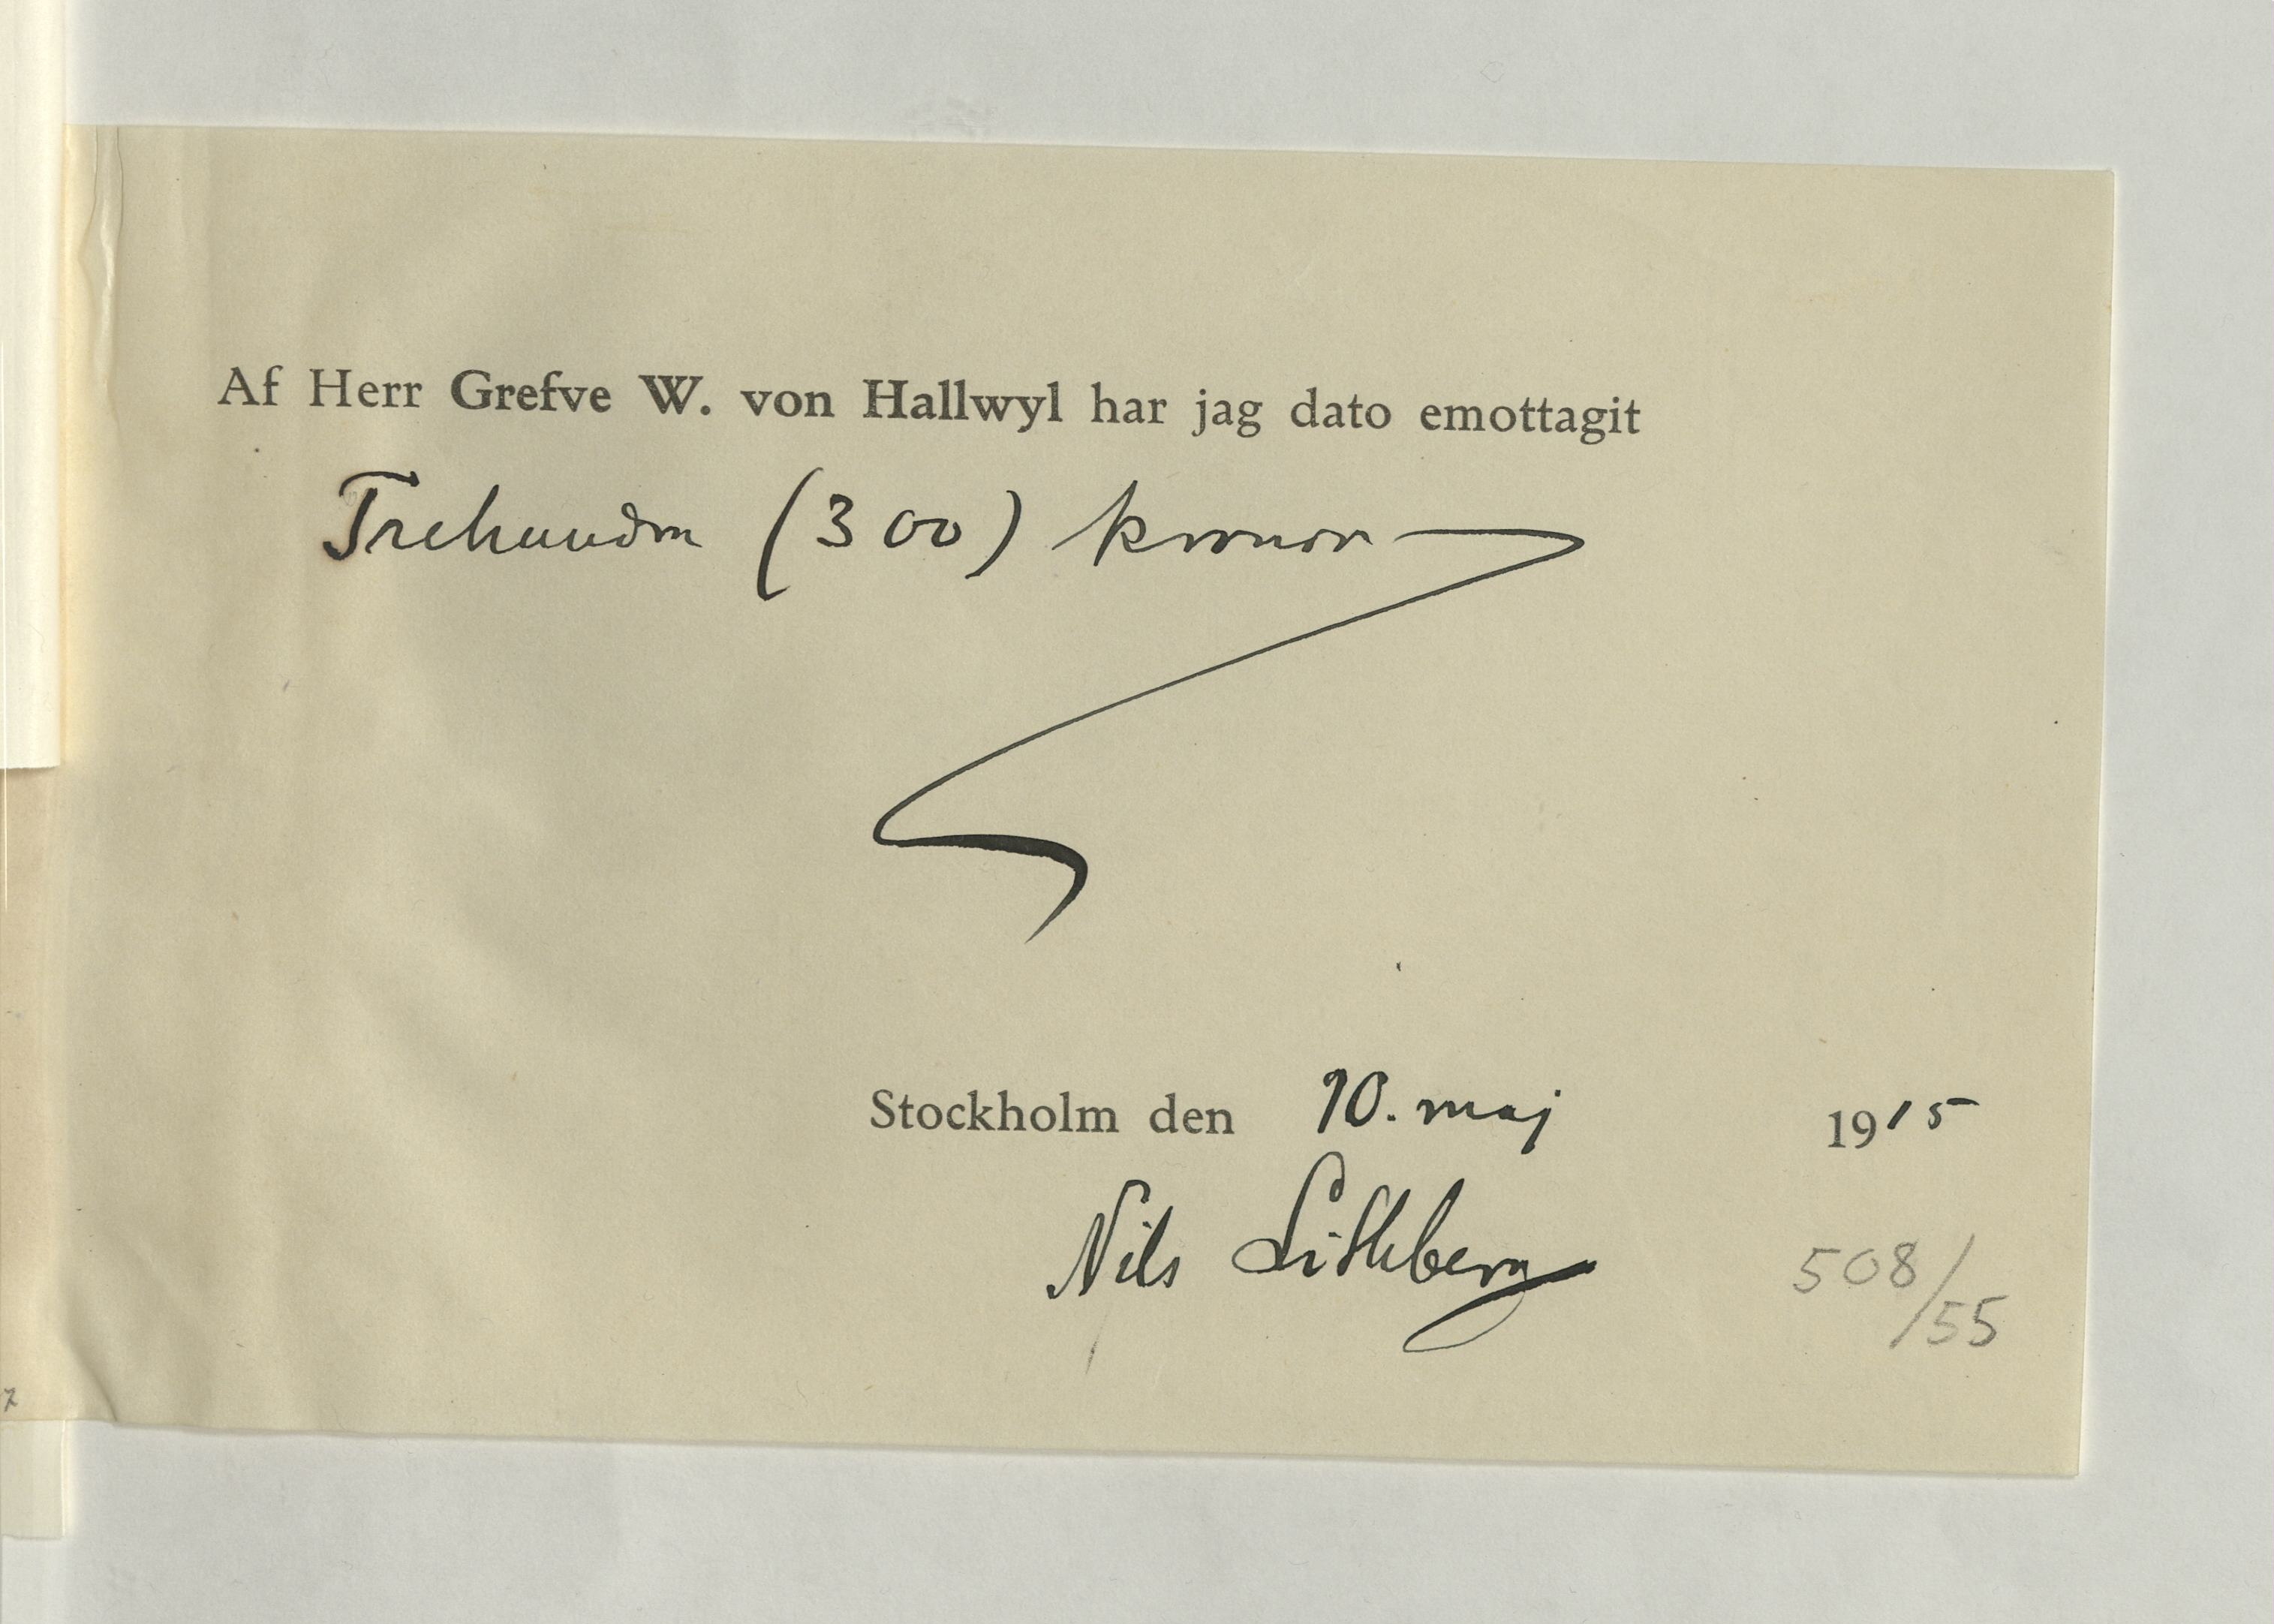 Af Herr Grefve W. von Hallwyl har jag dato emottagit
Trehundra (300) kronor
Stockholm den 10. maj 1915
Nils Lithberg
508/55
7